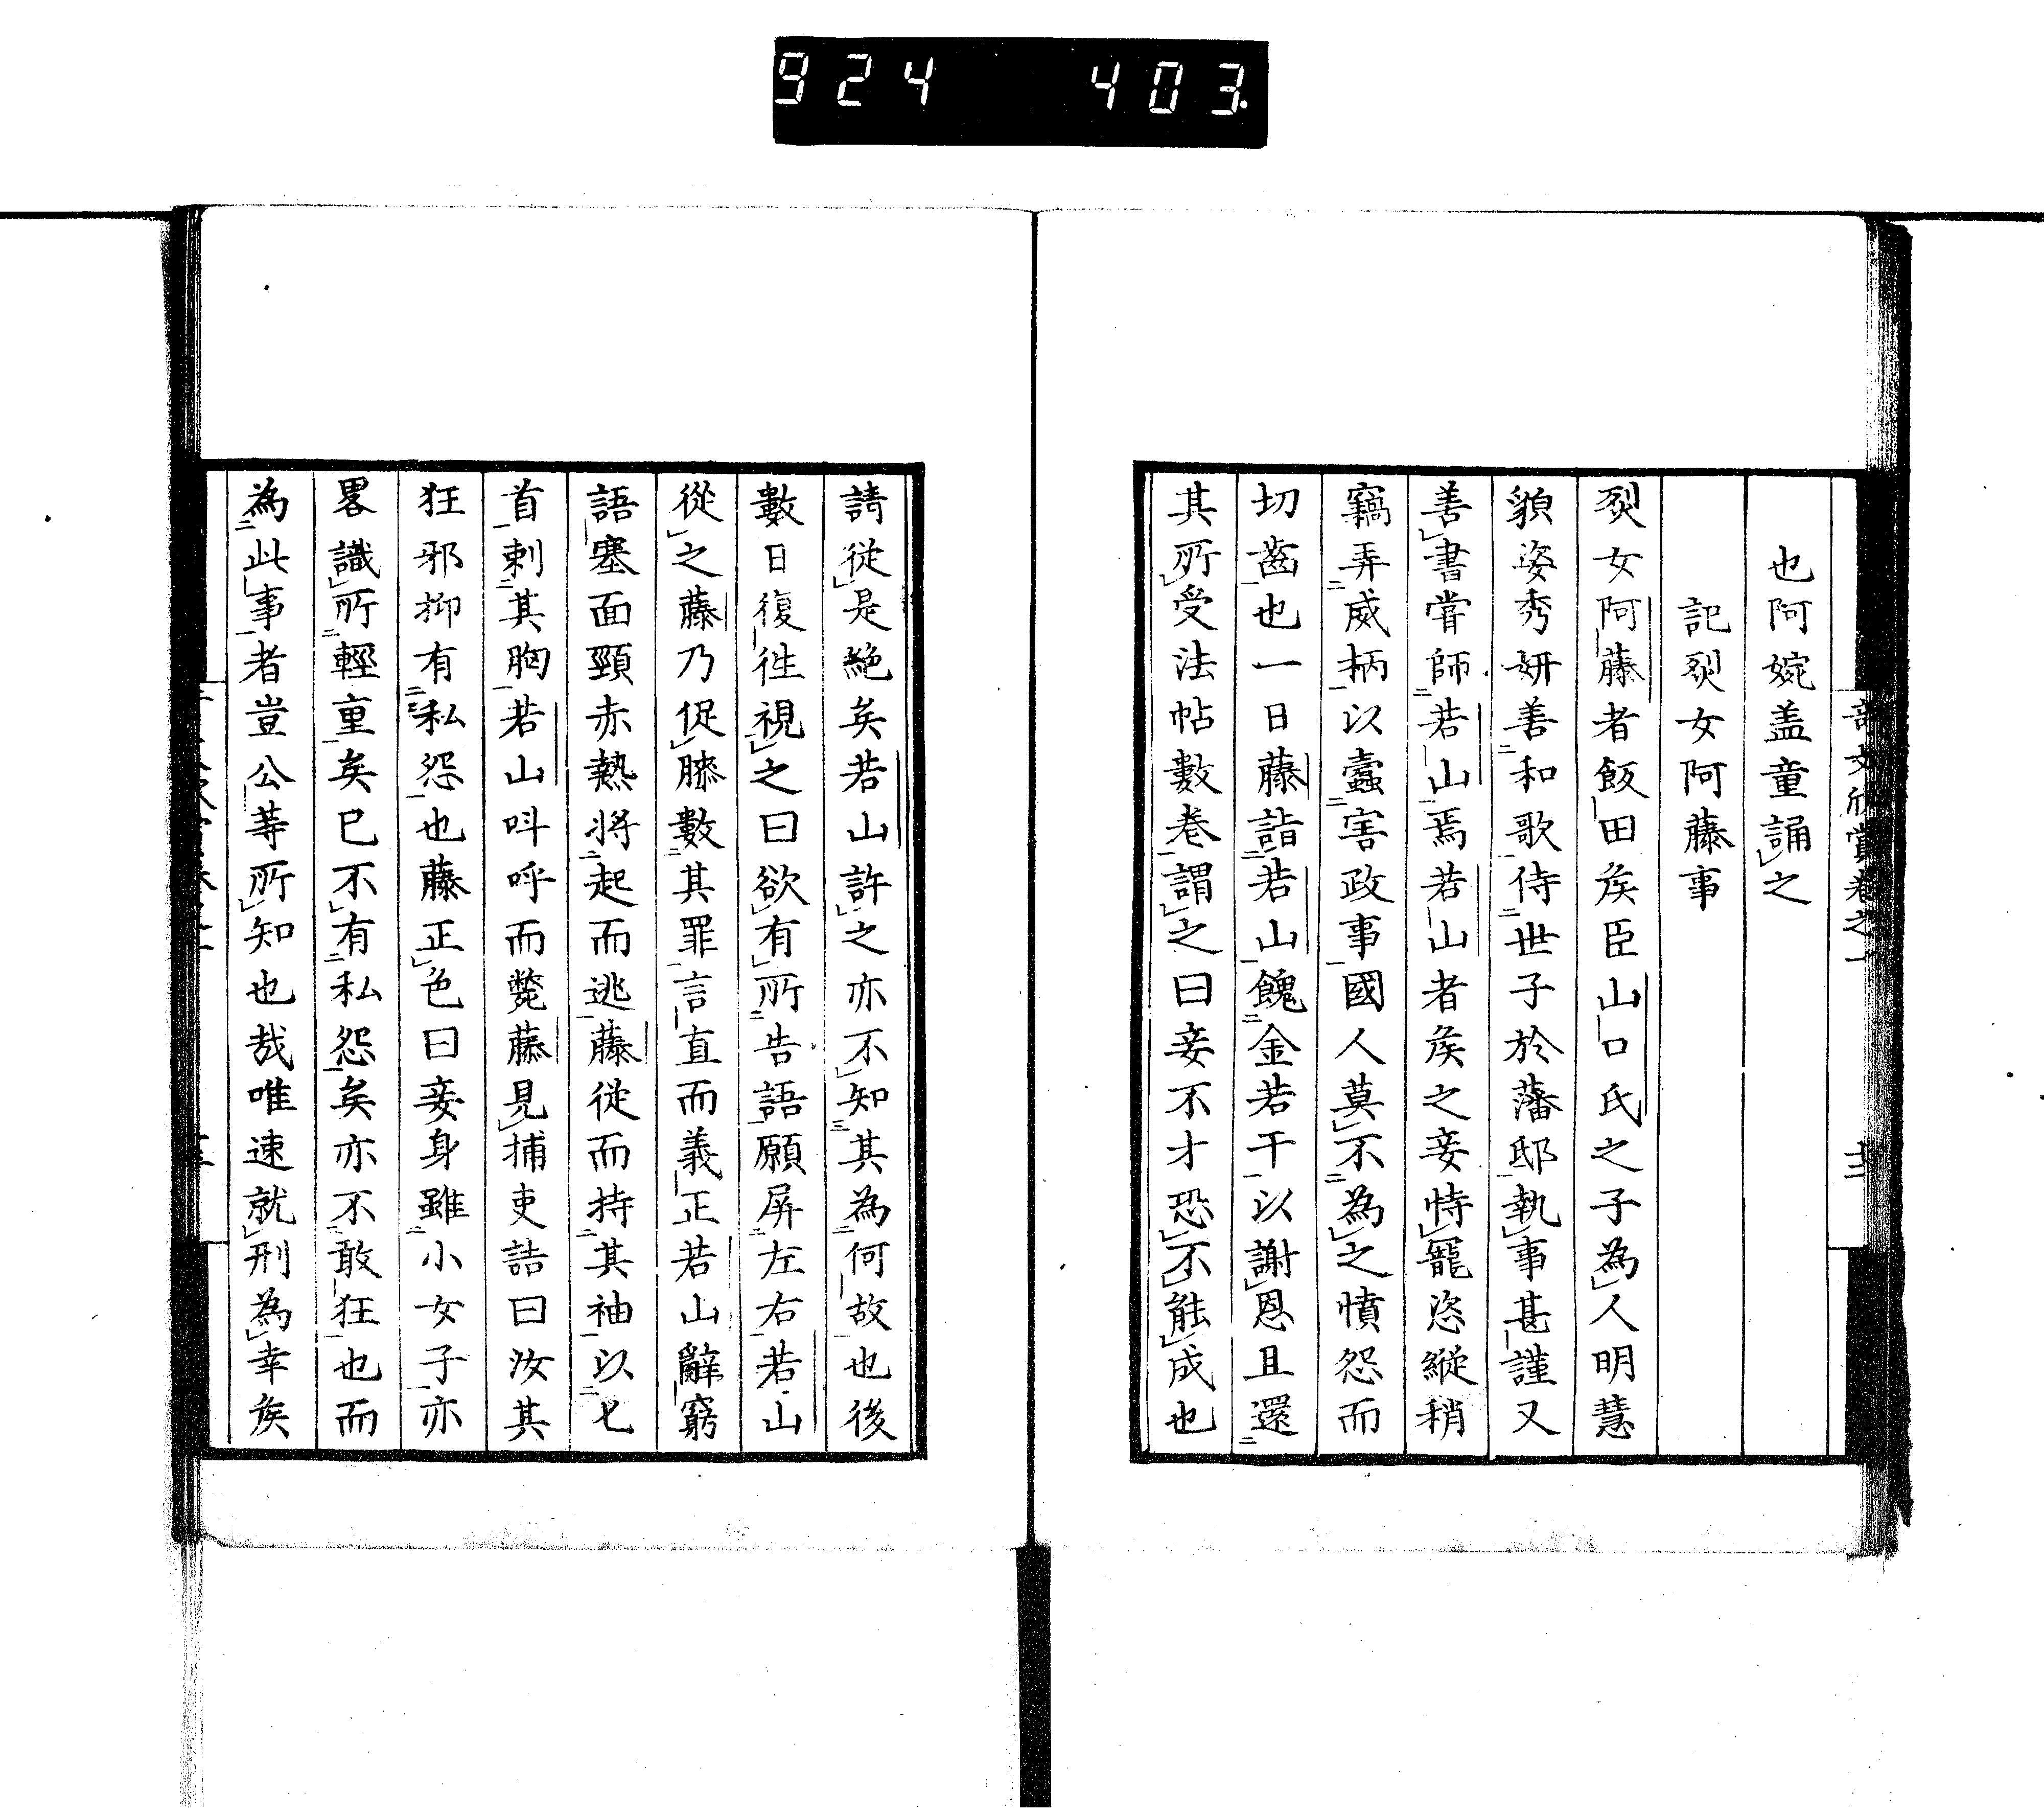 924 403.
也阿婉盖童誦之
記烈女阿藤事
烈女阿藤者飯田矦臣山口氏之子為人明慧
貌姿秀姸善和歌侍世子於藩邸執事甚謹又
善書甞師若山焉若山者矦之妾恃寵恣縱稍
竊弄威柄以蠹害政事國人莫不為之憤怨而
切齒也一日藤詣若山餽金若干以謝恩且還
其所受法帖數卷謂之曰妾不才恐不能成也
請從是絶矣若山許之亦不知其為何故也後
數日復徃視之曰欲有所告語願屏左右若山
從之藤乃促膝數其罪言直而義正若山辭窮
語塞面頸赤熱將起而逃藤從而持其袖以匕
首刺其胸若山呌呼而斃藤見捕吏詰曰汝其
狂邪抑有私怨也藤正色曰妾身雖小女子亦
畧識所輕重矣已不有私怨矣亦不敢狂也而
為此事者豈公等所知也哉唯速就刑為幸矣